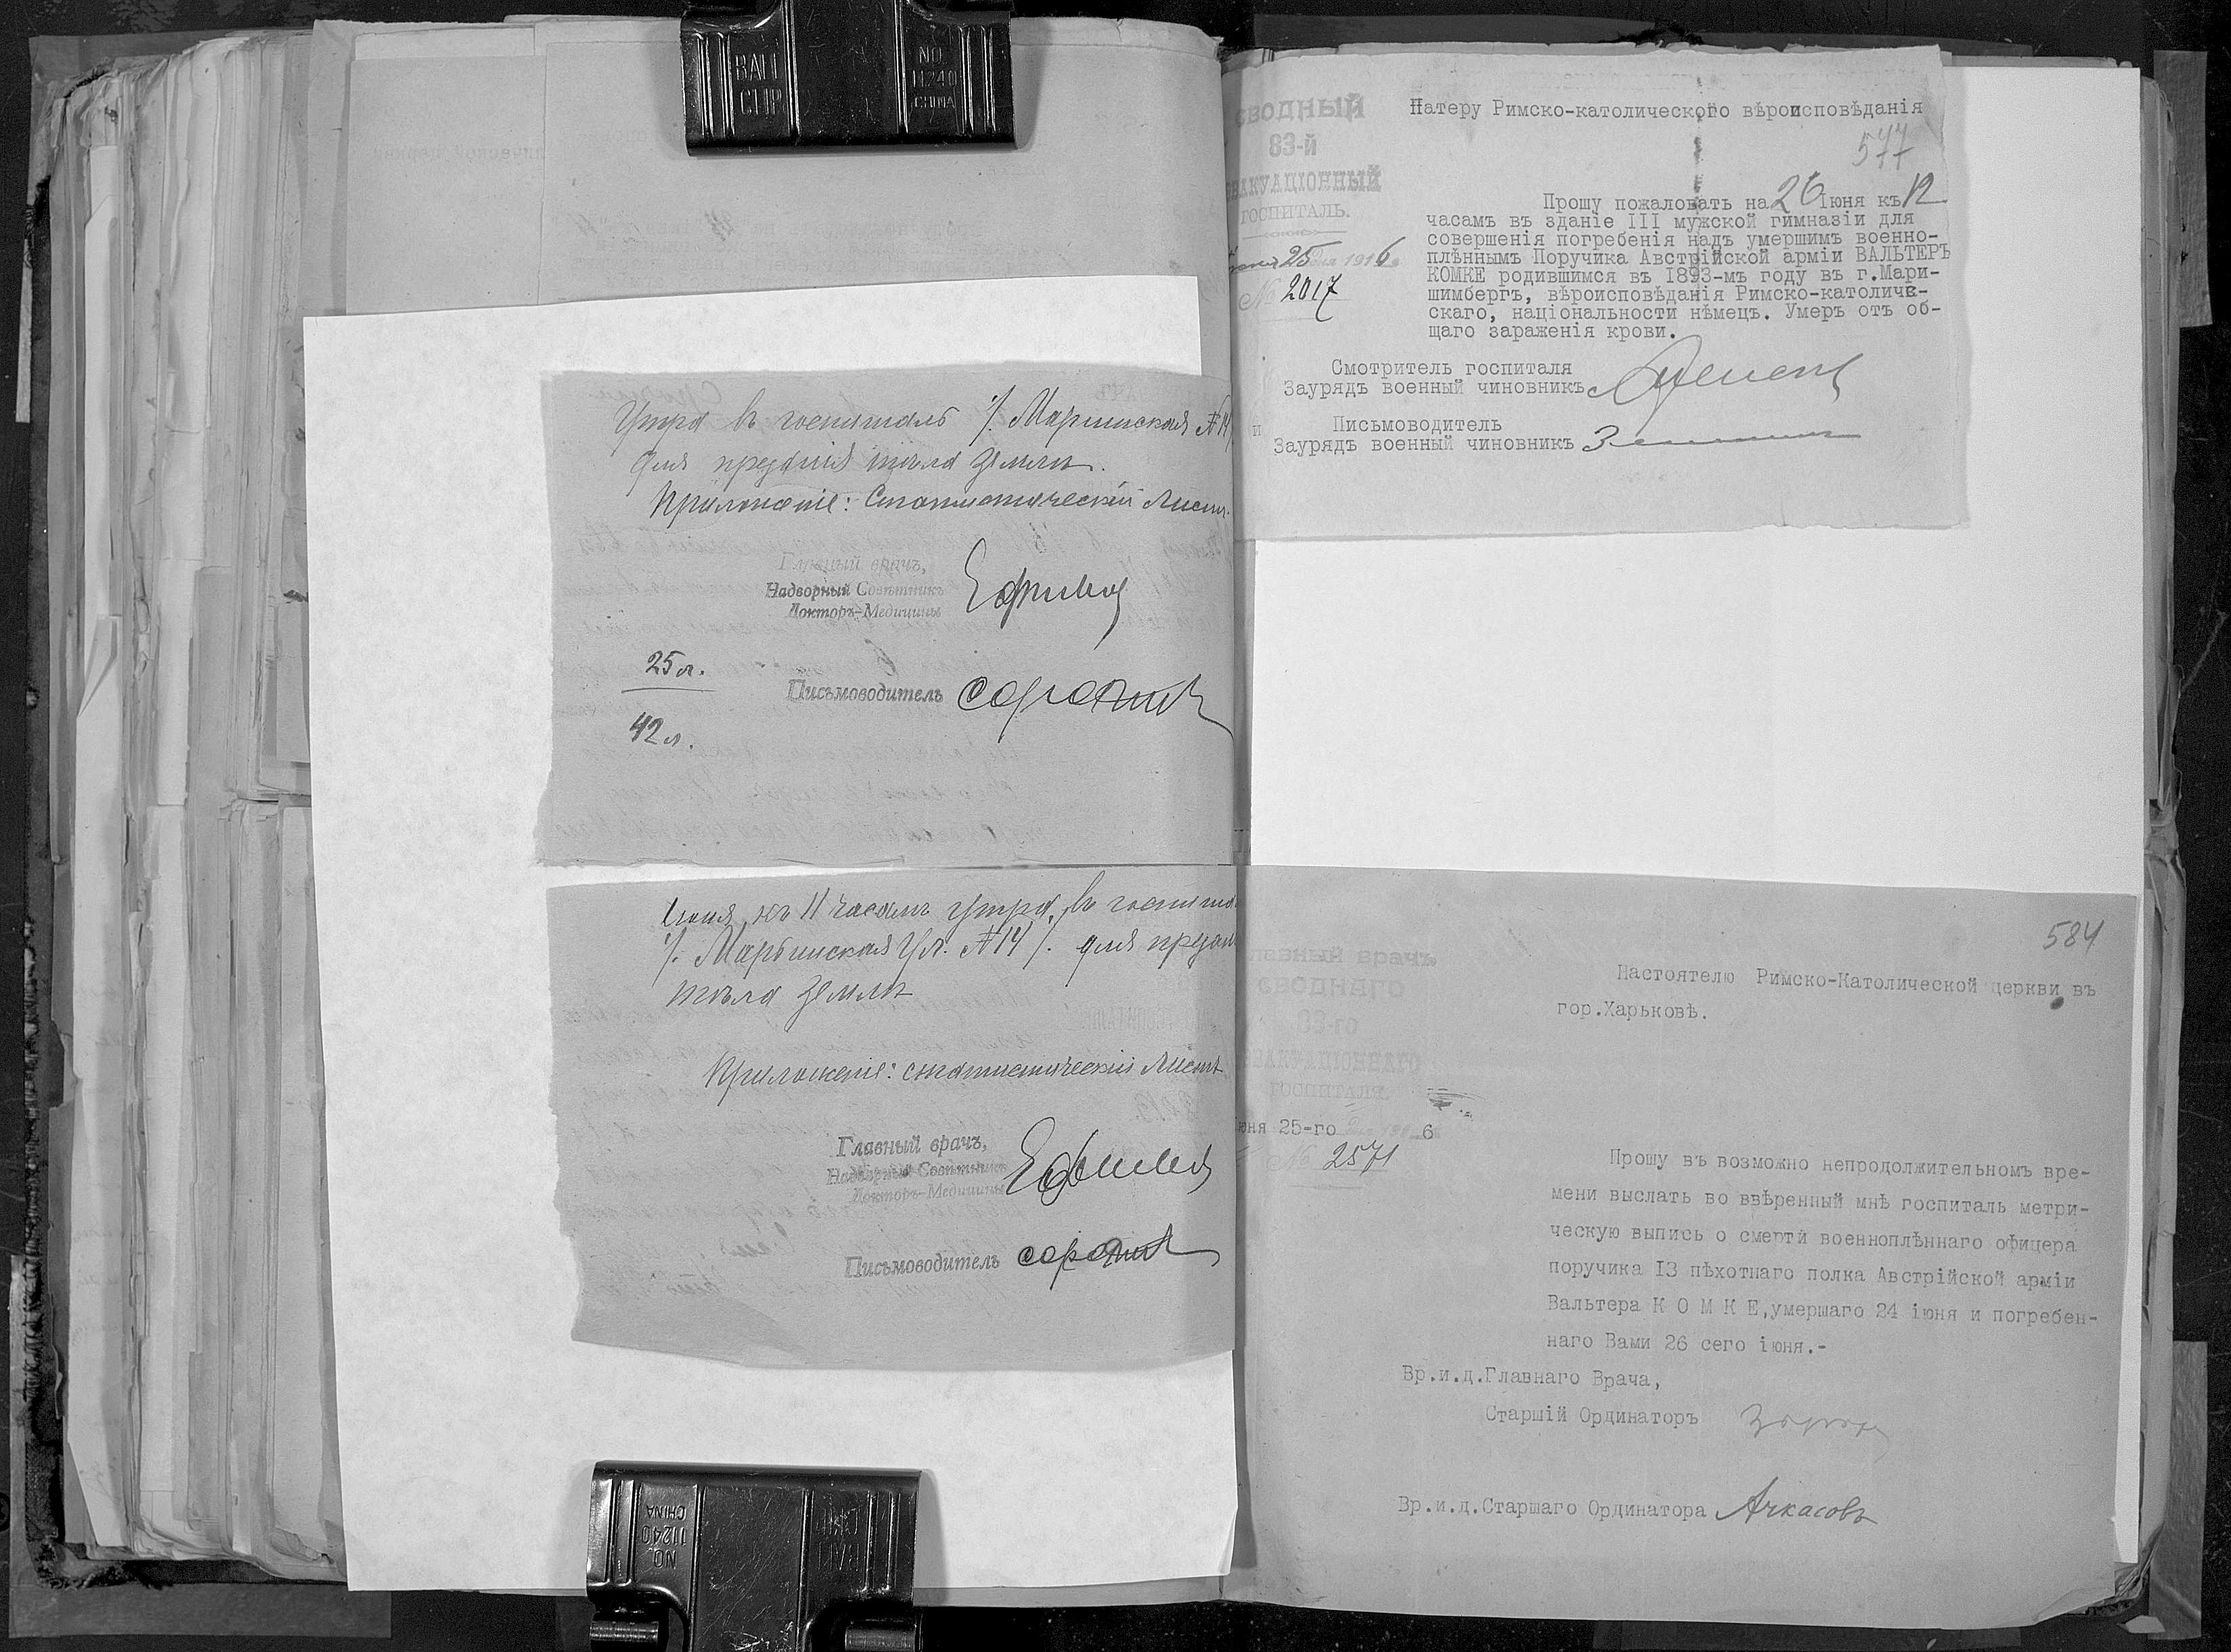 BALL
CLIP
NO.
11240
CHINA
утра въ госпиталь /. Маріинская №14
для преданія тѣла землѣ.
Приложеніе: Статистическій листъ.
Главный врачъ,
Надворный Совѣтникъ
Докторъ-Медицины
25 л.
Письмоводитель
42 л.
іюня къ 11 часамъ утра, въ госпита
/. Маріинская ул. №14 /. для предан
тѣла землѣ
Приложеніе: статистическій листъ
Главный врачъ,
Надворный Совѣтникъ
Докторъ-Медицины
Письмоводитель
CHINA
11240
NO.
BALL
CLIP
СВОДНЫЙ
83-й
ЭВАКУАЦІОННЫЙ
ГОСПИТАЛЬ.
25 1916
№ 2017
Патеру Римско-католического вѣроисповѣданія
577
Прошу пожаловать на 26 Іюня къ 12
часамъ въ зданіе III мужской гимназіи для
совершенія погребенія надъ умершимъ военно-
плѣннымъ Поручика Австрійской арміи ВАЛЬТЕРЪ
КОМКЕ родившимся въ 1893-мъ году въ г.Мари-
шимбергъ, вѣроисповѣданія Римско-католиче-
скаго, національности нѣмецъ. Умеръ отъ об-
щаго зараженія крови.
Смотритель госпиталя
Заурядъ военный чиновникъ
и
Письмоводитель
Заурядъ военный чиновникъ
584
Главный врачъ
СВОДНАГО
83-го
ЭВАКУАЦІОННАГО
ГОСПИТАЛЯ.
Іюня 25-го 6
№ 2571
Настоятелю Римско-Католической церкви въ
гор.Харьковѣ.
Прошу въ возможно непродолжительномъ вре-
мени выслать во ввѣренный мнѣ госпиталь метри-
ческую выпись о смерти военноплѣннаго офицера
поручика I3 пѣхотнаго полка Австрійской арміи
Вальтера К О М К Е,умершаго 24 іюня и погребен-
наго Вами 26 сего іюня.-
Вр.и.д.Главнаго Врача,
Старшій Ординаторъ
Вр.и.д.Старшаго Ординатора Ачкасовъ